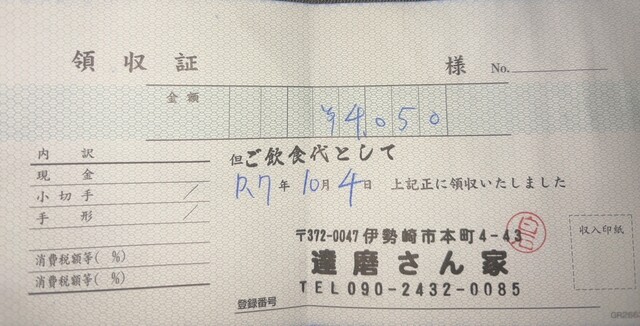 領収証
様 No.
金額 ¥4,050
但ご飲食代として
R7年10月4日 上記正に領収いたしました
内訳
現金
小切手 /
手形 /
消費税額等( %)
消費税額等( %)
〒372-0047 伊勢崎市本町4-43
達磨さん家
TEL 090-2432-0085
収入印紙
登録番号